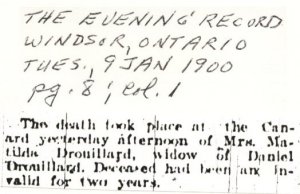 THE EVENING RECORD
WINDSOR, ONTARIO
TUES., 9 JAN 1900
pg. 8; Col. 1
The death took place at the Can-
ard yesterday afternoon of Mrs. Ma-
tilda Drouillard, widow of Daniel
Drouillard. Deceased had been an in-
valid for two years.